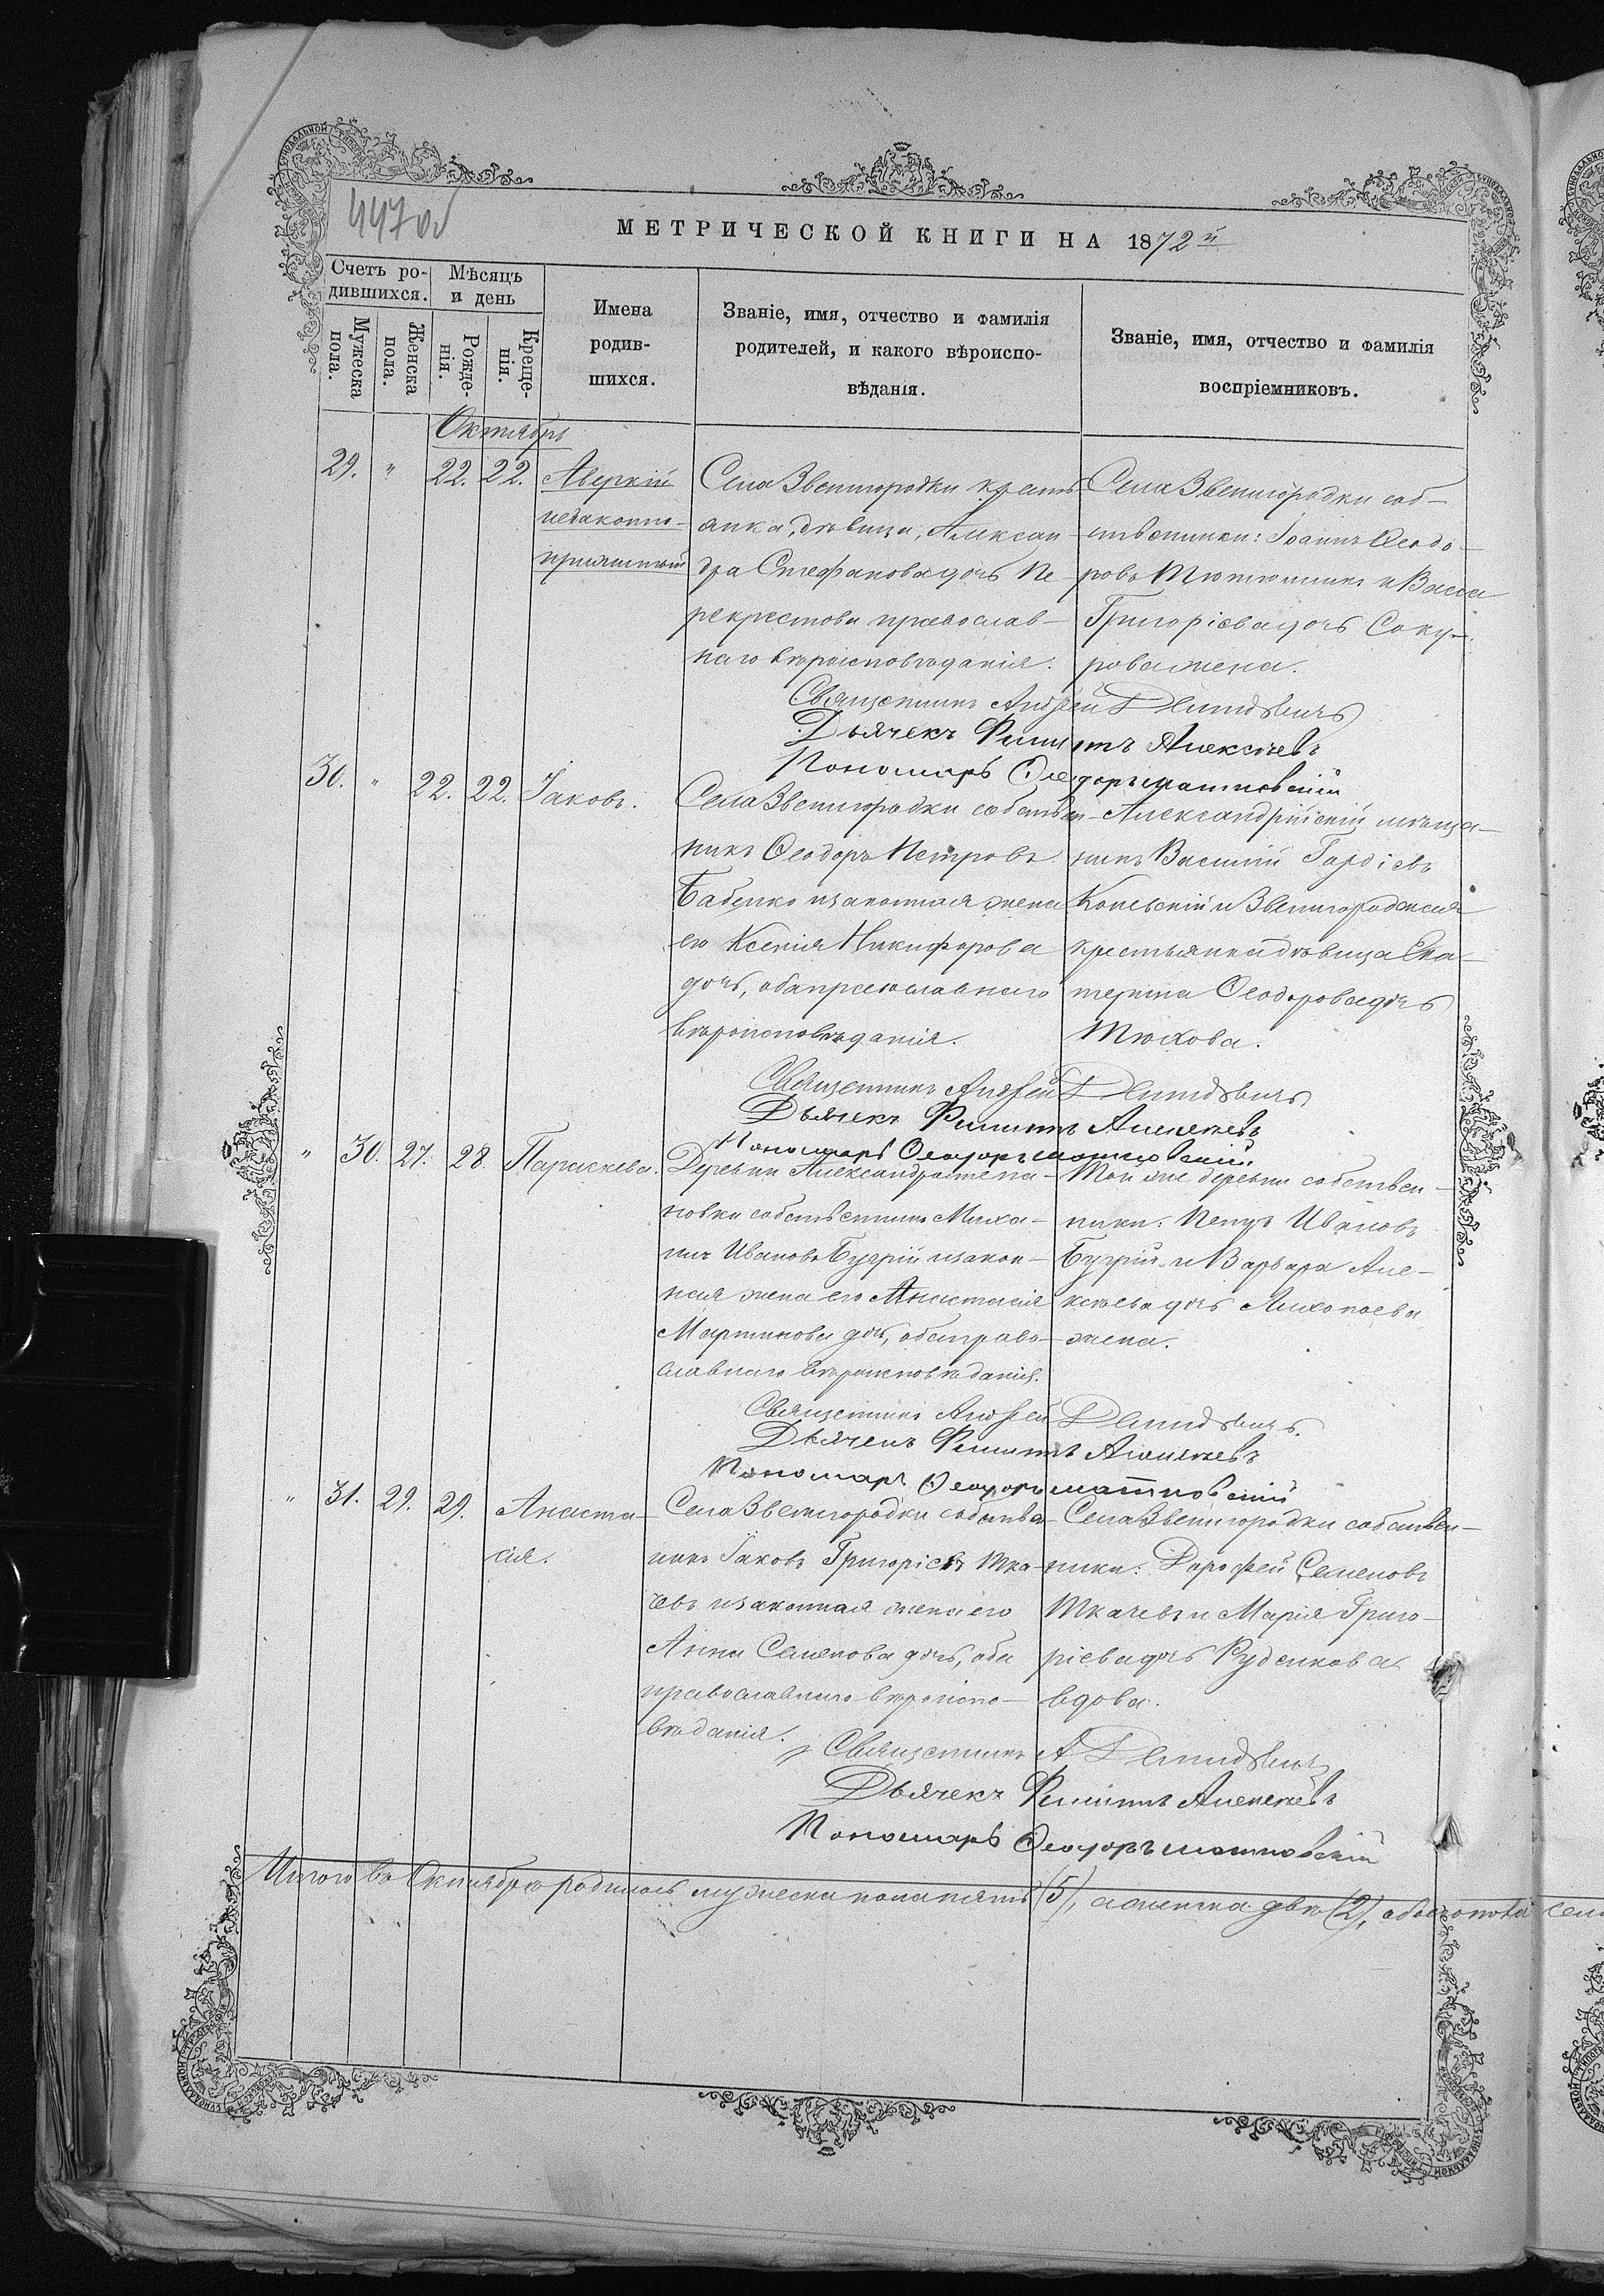 447об
МЕТРИЧЕСКОЙ КНИГИ НА 1872й
Счетъ ро-
дившихся.
Мѣсяцъ
и день
Мужеска
пола.
Женска
пола.
Рожде-
нія.
Креще-
нія.
Имена
родив-
шихся.
Званіе, имя, отчество и фамилія
родителей, и какого вѣроиспо-
вѣданія.
Званіе, имя, отчество и фамилія
воспріемниковъ.
Октябрь
29. " 22. 22. Аверкій
незаконно-
прижитый
Села Звенигородки кресть-
янка, дѣвица, Алексан-
дра Стефанова дочь Пе
рекрестова православ-
наго вѣроисповѣданія.
Села Звенигородки соб-
ственники: Іоаннъ Ѳеодо-
ровъ Тютюнникъ и Васса
Григоріева дочь Саку-
рова жена.
Священникъ Андрей Демидовичъ
Дьячекъ Филиппъ Алексѣевъ
Пономарь Ѳеодоръ Матковскій
30. " 22. 22. Іаковъ.
Села Звенигородки собствен-
никъ Ѳеодоръ Петровъ
Бабенко и законная жена
его Ксенія Никифорова
дочь, оба православнаго
вѣроисповѣданія.
Александрійскій мѣща-
нинъ Василій Гордіевъ
Копевскій и Звенигородская
крестьянка дѣвица Ека-
терина Ѳеодорова дочь
Тюхова.
Священникъ Андрей Демидовичъ
Дьячекъ Филиппъ Алексѣевъ
Пономарь Ѳеодоръ Матковскій
" 30. 27. 28. Параскева.
Деревни Александростепа-
новки собственникъ Миха-
илъ Ивановъ Бугрій и закон-
ная жена его Анастасія
Мартинова дочь, оба право-
славнаго вѣроисповѣданія.
Той же деревни собствен-
ники: Петръ Ивановъ
Бугрій и Варвара Але-
ксѣева дочь Лихолаева
жена.
Священникъ Андрей Демидовичъ.
Дьячекъ Филиппъ Алексѣевъ
Пономарь Ѳеодоръ Матковскій
" 31. 29. 29. Анаста-
сія.
Села Звенигородки собстве-
никъ Іаковъ Григоріевъ Тка-
чевъ и законная жена его
Анна Семенова дочь, оба
православнаго вѣроиспо-
вѣданія.
Села Звенигородки собствен-
ники: Дорофей Семеновъ
Ткачевъ и Марія Григо-
ріева дочь Руденкова
вдова.
Священникъ А Демидовичъ
Дьячекъ Филиппъ Алексѣевъ
Пономарь Ѳеодоръ Матковскій
Итого въ Октябрѣ родилось мужеска пола пять (5), а женска двѣ (2), обоего пола семь